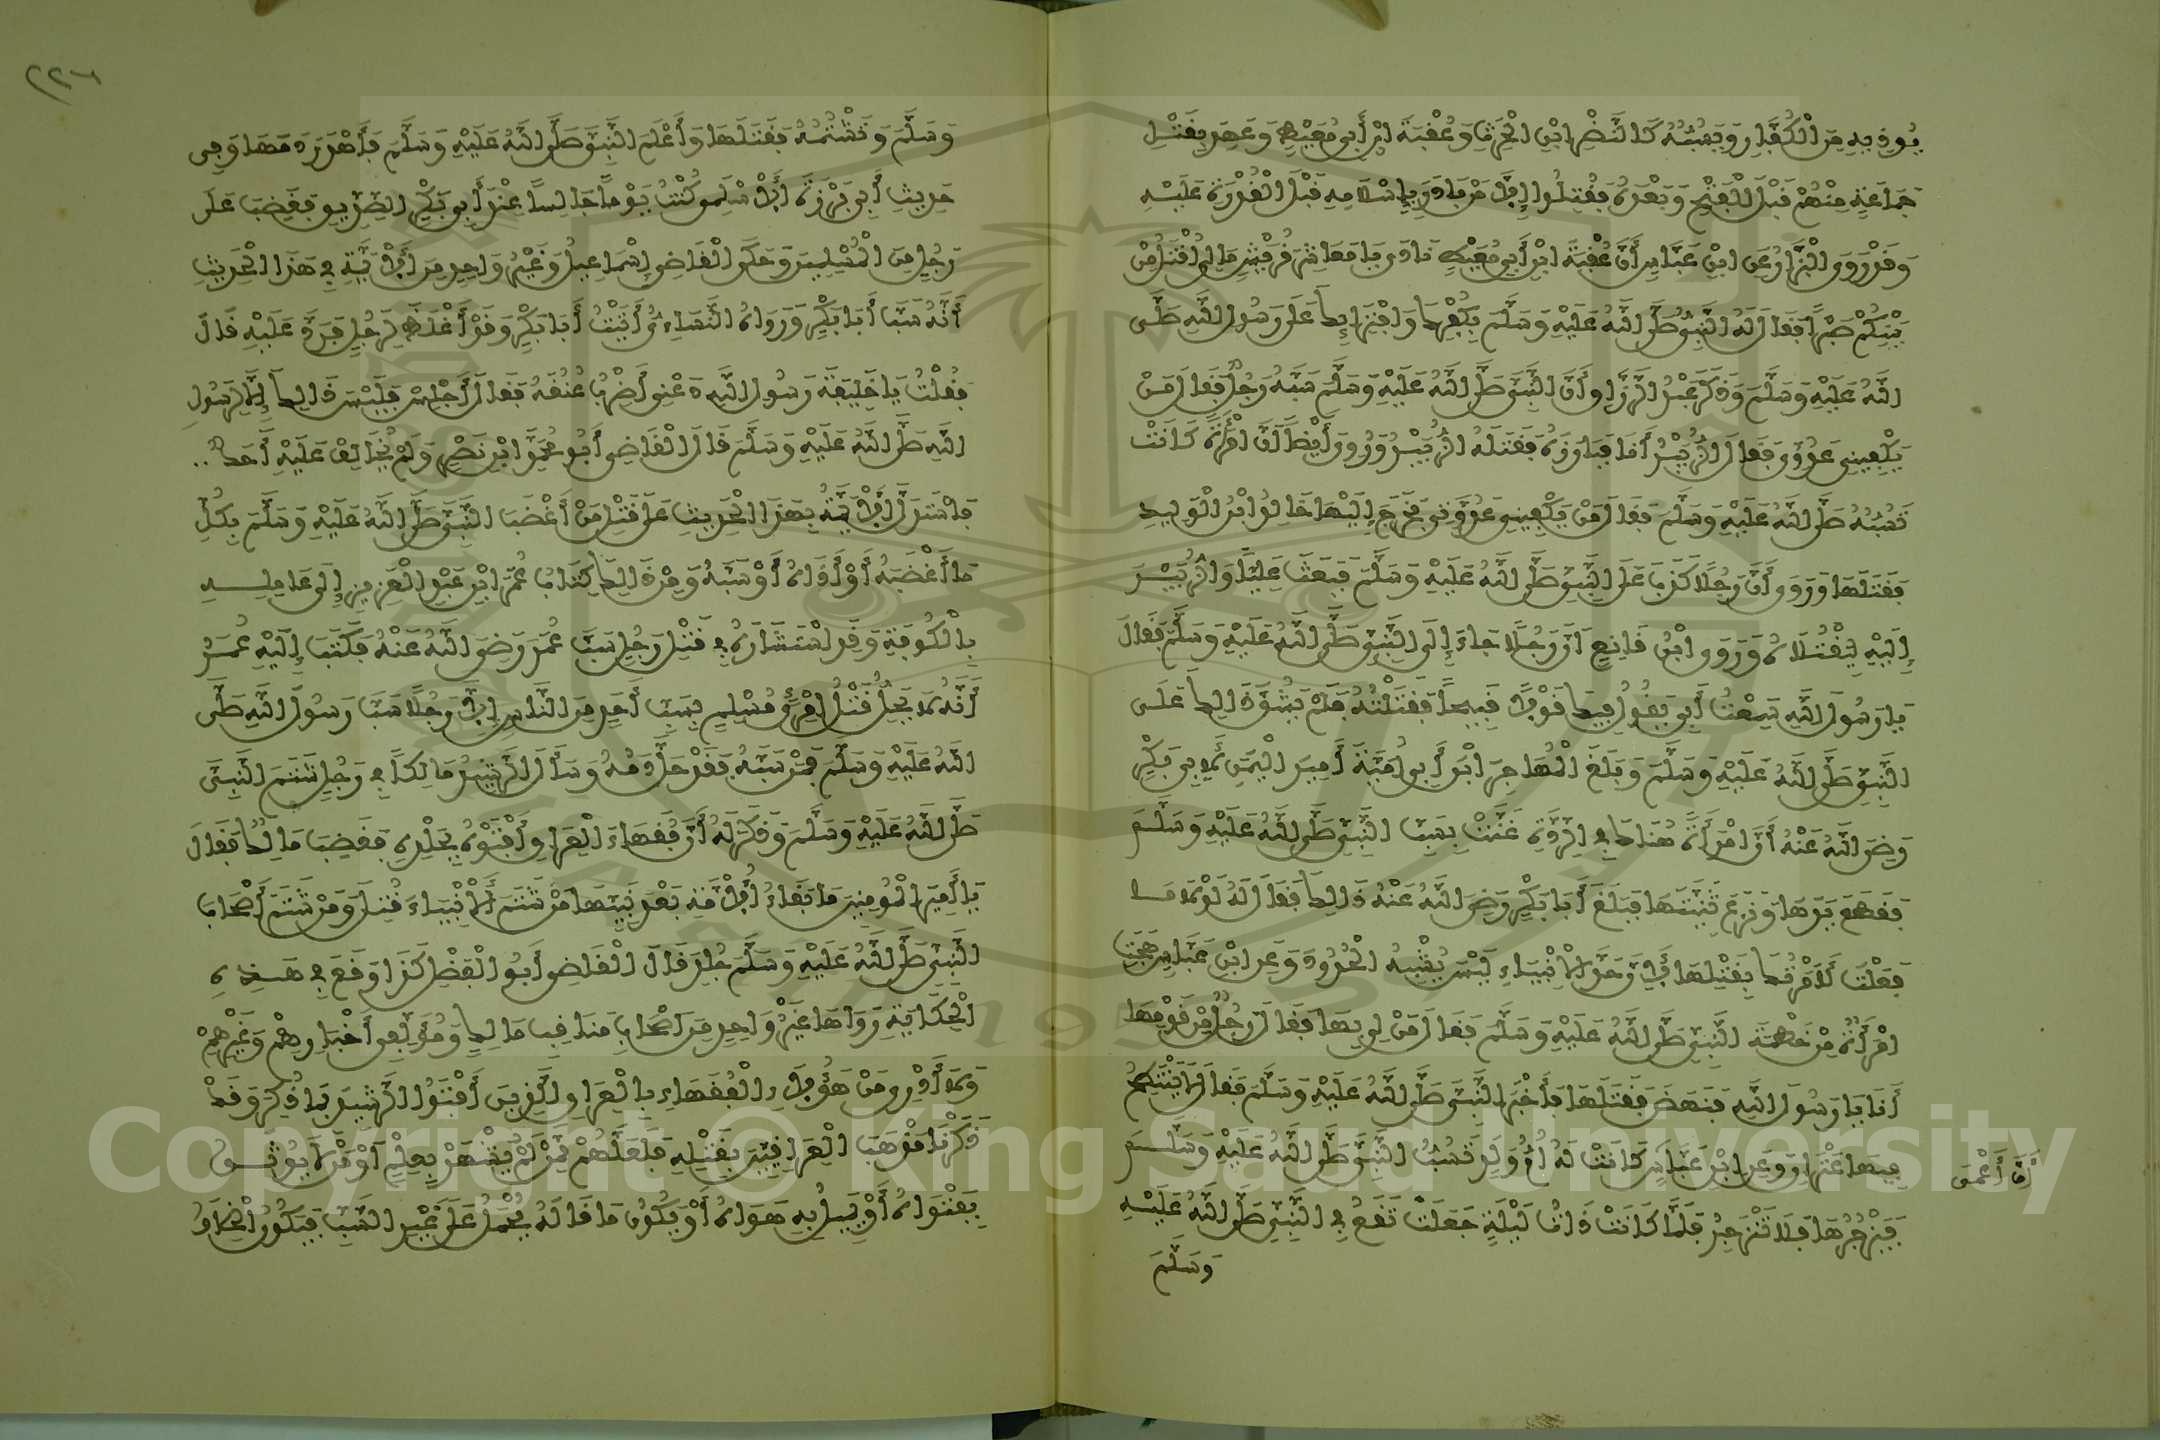 يُوذِيهِ مِنَ الْكُفَّارِ وَيَسُبُّهُ كَالنَّضْرِ ابْنِ الْحَرْثِ وَعُقْبَةَ ابْنِ أَبِي مُعَيْطٍ وَعَهِدَ بِقَتْلِ
جَمَاعَةٍ مِنْهُمْ قَبْلَ الْفَتْحِ وَبَعْدَهُ فَقُتِلُوا إِلَّا مَنْ بَادَرَ بِإِسْلَامِهِ قَبْلَ الْقُدْرَةِ عَلَيْهِ
وَقَدْ رَوَى الْبَزَّارُ عَنِ ابْنِ عَبَّاسٍ أَنَّ عُقْبَةَ ابْنَ أَبِي مُعَيْطٍ نَادَى يَا مَعَاشِرَ قُرَيْشٍ مَا لِي أُقْتَلُ مِنْ
بَيْنِكُمْ صَبْرًا فَقَالَ لَهُ النَّبِيُّ صَلَّى اللَّهُ عَلَيْهِ وَسَلَّمَ بِكُفْرِكَ وَافْتِرَائِكَ عَلَى رَسُولِ اللَّهِ صَلَّى
اللَّهُ عَلَيْهِ وَسَلَّمَ وَذَكَرَ عَبْدُ الرَّزَّاقِ أَنَّ النَّبِيَّ صَلَّى اللَّهُ عَلَيْهِ وَسَلَّمَ سَبَّهُ رَجُلٌ فَقَالَ مَنْ
يَكْفِينِي عَدُوِّي فَقَالَ الزُّبَيْرُ أَنَا فَبَارَزَهُ فَقَتَلَهُ الزُّبَيْرُ وَرُوِيَ أَيْضًا أَنَّ امْرَأَةً كَانَتْ
تَسُبُّهُ صَلَّى اللَّهُ عَلَيْهِ وَسَلَّمَ فَقَالَ مَنْ يَكْفِينِي عَدُوَّتِي فَخَرَجَ إِلَيْهَا خَالِدُ ابْنُ الْوَلِيدِ
فَقَتَلَهَا وَرُوِيَ أَنَّ رَجُلًا كَذَبَ عَلَى النَّبِيِّ صَلَّى اللَّهُ عَلَيْهِ وَسَلَّمَ فَبَعَثَ عَلِيًّا وَالزُّبَيْرَ
إِلَيْهِ لِيَقْتُلَاهُ وَرَوَى ابْنُ قَانِعٍ أَنَّ رَجُلًا جَاءَ إِلَى النَّبِيِّ صَلَّى اللَّهُ عَلَيْهِ وَسَلَّمَ فَقَالَ
يَا رَسُولَ اللَّهِ سَمِعْتُ أَبِي يَقُولُ فِيكَ قَوْلًا قَبِيحًا فَقَتَلْتُهُ فَلَمْ يَشُقَّ ذَلِكَ عَلَى
النَّبِيِّ صَلَّى اللَّهُ عَلَيْهِ وَسَلَّمَ وَبَلَغَ الْمُهَاجِرَ ابْنَ أَبِي أُمَيَّةَ أَمِيرَ الْيَمَنِ لِأَبِي بَكْرٍ
رَضِيَ اللَّهُ عَنْهُ أَنَّ امْرَأَةً هُنَاكَ فِي الرِّدَّةِ غَنَّتْ بِسَبِّ النَّبِيِّ صَلَّى اللَّهُ عَلَيْهِ وَسَلَّمَ
فَقَطَعَ يَدَهَا وَنَزَعَ ثَنِيَّتَهَا فَبَلَغَ أَبَا بَكْرٍ رَضِيَ اللَّهُ عَنْهُ ذَلِكَ فَقَالَ لَهُ لَوْلَا مَا
فَعَلْتَ لَأَمَرْتُكَ بِقَتْلِهَا لِأَنَّ حَدَّ الْأَنْبِيَاءِ لَيْسَ يُشْبِهُ الْحُدُودَ وَعَنِ ابْنِ عَبَّاسٍ هَجَتِ
امْرَأَةٌ مِنْ خَطْمَةَ النَّبِيَّ صَلَّى اللَّهُ عَلَيْهِ وَسَلَّمَ فَقَالَ مَنْ لِي بِهَا فَقَالَ رَجُلٌ مِنْ قَوْمِهَا
أَنَا يَا رَسُولَ اللَّهِ فَنَهَضَ فَقَتَلَهَا فَأَخْبَرَ النَّبِيَّ صَلَّى اللَّهُ عَلَيْهِ وَسَلَّمَ فَقَالَ لَا يَنْتَطِحُ
فِيهَا عَنْزَانِ وَعَنِ ابْنِ عَبَّاسٍ كَانَتْ لَهُ أُمُّ وَلَدٍ تَسُبُّ النَّبِيَّ صَلَّى اللَّهُ عَلَيْهِ وَسَلَّمَ
أَنَّ أَعْمَى
فَيَزْجُرُهَا فَلَا تَنْزَجِرُ فَلَمَّا كَانَتْ ذَاتُ لَيْلَةٍ جَعَلَتْ تَقَعُ فِي النَّبِيِّ صَلَّى اللَّهُ عَلَيْهِ
وَسَلَّمَ
٢٢٦
وَسَلَّمَ وَتَشْتُمُهُ فَقَتَلَهَا وَأَعْلَمَ النَّبِيَّ صَلَّى اللَّهُ عَلَيْهِ وَسَلَّمَ فَأَهْدَرَ دَمَهَا وَفِي
حَدِيثِ أَبِي بَرْزَةَ الْأَسْلَمِي كُنْتُ يَوْمًا جَالِسًا عِنْدَ أَبِي بَكْرٍ الصِّدِّيقِ فَغَضِبَ عَلَى
رَجُلٍ مِنَ الْمُسْلِمِينَ وَحَكَى الْقَاضِي إِسْمَاعِيلُ وَغَيْرُ وَاحِدٍ مِنَ الْأَئِمَّةِ فِي هَذَا الْحَدِيثِ
أَنَّهُ سَبَّ أَبَا بَكْرٍ وَرَوَاهُ النَّسَاءِيُّ أَتَيْتُ أَبَا بَكْرٍ وَقَدْ أَغْلَظَ لِرَجُلٍ فَرَدَّ عَلَيْهِ قَالَ
فَقُلْتُ يَا خَلِيفَةَ رَسُولِ اللَّهِ دَعْنِي أَضْرِبُ عُنُقَهُ فَقَالَ اجْلِسْ فَلَيْسَ ذَلِكَ إِلَّا لِرَسُولِ
اللَّهِ صَلَّى اللَّهُ عَلَيْهِ وَسَلَّمَ قَالَ الْقَاضِي أَبُو مُحَمَّدٍ ابْنُ نَصْرٍ وَلَمْ يُخَالِفْ عَلَيْهِ أَحَدٌ
فَاسْتَدَلَّ الْأَئِمَّةُ بِهَذَا الْحَدِيثِ عَلَى قَتْلِ مَنْ أَغْضَبَ النَّبِيَّ صَلَّى اللَّهُ عَلَيْهِ وَسَلَّمَ بِكُلِّ
مَا أَغْضَبَهُ أَوْ أَذَاهُ أَوْ سَبَّهُ وَمِنْ ذَلِكَ كِتَابُ عُمَرَ ابْنِ عَبْدِ الْعَزِيزِ إِلَى عَامِلِهِ
بِالْكُوفَةِ وَقَدِ اسْتَشَارَهُ فِي قَتْلِ رَجُلٍ سَبَّ عُمَرَ رَضِيَ اللَّهُ عَنْهُ فَكَتَبَ إِلَيْهِ عُمَرُ
أَنَّهُ لَا يَحِلُّ قَتْلُ امْرِئٍ مُسْلِمٍ بِسَبِّ أَحَدٍ مِنَ النَّاسِ إِلَّا رَجُلًا سَبَّ رَسُولَ اللَّهِ صَلَّى
اللَّهُ عَلَيْهِ وَسَلَّمَ فَمَنْ سَبَّهُ فَقَدْ حَلَّ دَمُهُ وَسَأَلَ الرَّشِيدُ مَالِكًا فِي رَجُلٍ شَتَمَ النَّبِيَّ
صَلَّى اللَّهُ عَلَيْهِ وَسَلَّمَ وَذَكَرَ لَهُ أَنَّ فُقَهَاءَ الْعِرَاقِ أَفْتَوْهُ بِجَلْدِهِ فَغَضِبَ مَالِكٌ فَقَالَ
يَا أَمِيرَ الْمُومِنِينَ مَا بَقَاءُ الْأُمَّةِ بَعْدَ نَبِيِّهَا مَنْ شَتَمَ الْأَنْبِيَاءَ قُتِلَ وَمَنْ شَتَمَ أَصْحَابَ
النَّبِيِّ صَلَّى اللَّهُ عَلَيْهِ وَسَلَّمَ جُلِدَ قَالَ الْقَاضِي أَبُو الْفَضْلِ كَذَا وَقَعَ فِي هَذِهِ
الْحِكَايَةِ رَوَاهَا غَيْرُ وَاحِدٍ مِنْ أَصْحَابِ مَنَاقِبِ مَالِكٍ وَمُؤَلِّفِي أَخْبَارِهِمْ وَغَيْرِهِمْ
وَلَا أَدْرِي مَنْ هَؤُلَاءِ الْفُقَهَاءِ بِالْعِرَاقِ الَّذِينَ أَفْتَوُا الرَّشِيدَ بِمَا ذُكِرَ وَقَدْ
ذَكَرْنَا مَذْهَبَ الْعِرَاقِيِّينَ بِقَتْلِهِ فَلَعَلَّهُمْ مِمَّنْ لَمْ يُشْهَرْ بِعِلْمٍ أَوْ مَنْ لَا يُوثَقُ
بِفَتْوَاهُ أَوْ يَمِيلُ بِهِ هَوَاهُ أَوْ يَكُونُ مَا قَالَهُ يُحْمَلُ عَلَى غَيْرِ السَّبِّ فَيَكُونُ الْخِلَافُ
Copyright © King Saud University